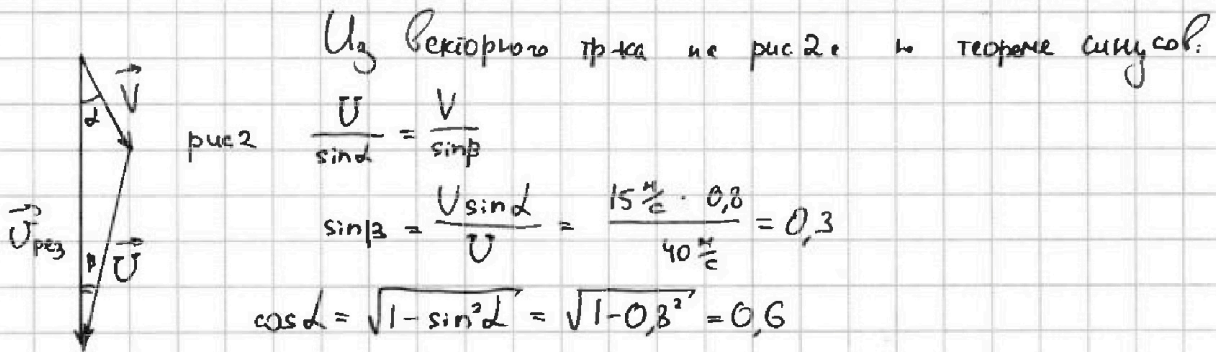 Из векторного тр-ка на рис 2 и по теореме синусов:
α
V⃗
рис 2
U/sinα = V/sinβ
sinβ = V sinα/U = 15 м/с · 0,8/40 м/с = 0,3
U⃗рез
β
U⃗
cosα = √(1-sin²α) = √(1-0,8²) = 0,6